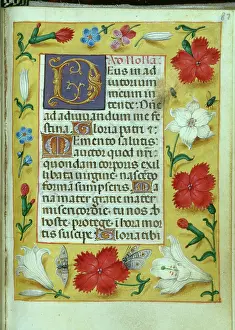 87
Ad nonam
Deus in ad
iutorium
meum in
tende: Dñe
ad adiuvandum me fe
stina. Gloria patri et
Memento salutis
auctor quod nr̃i
quondam corporis ex il
libata virgine nascedo
formã sumpseris. Ma
ria mater gratie mater
misericordie tu nos ab
hoste protege et hora mor
tis suscipe. Gloria tibi